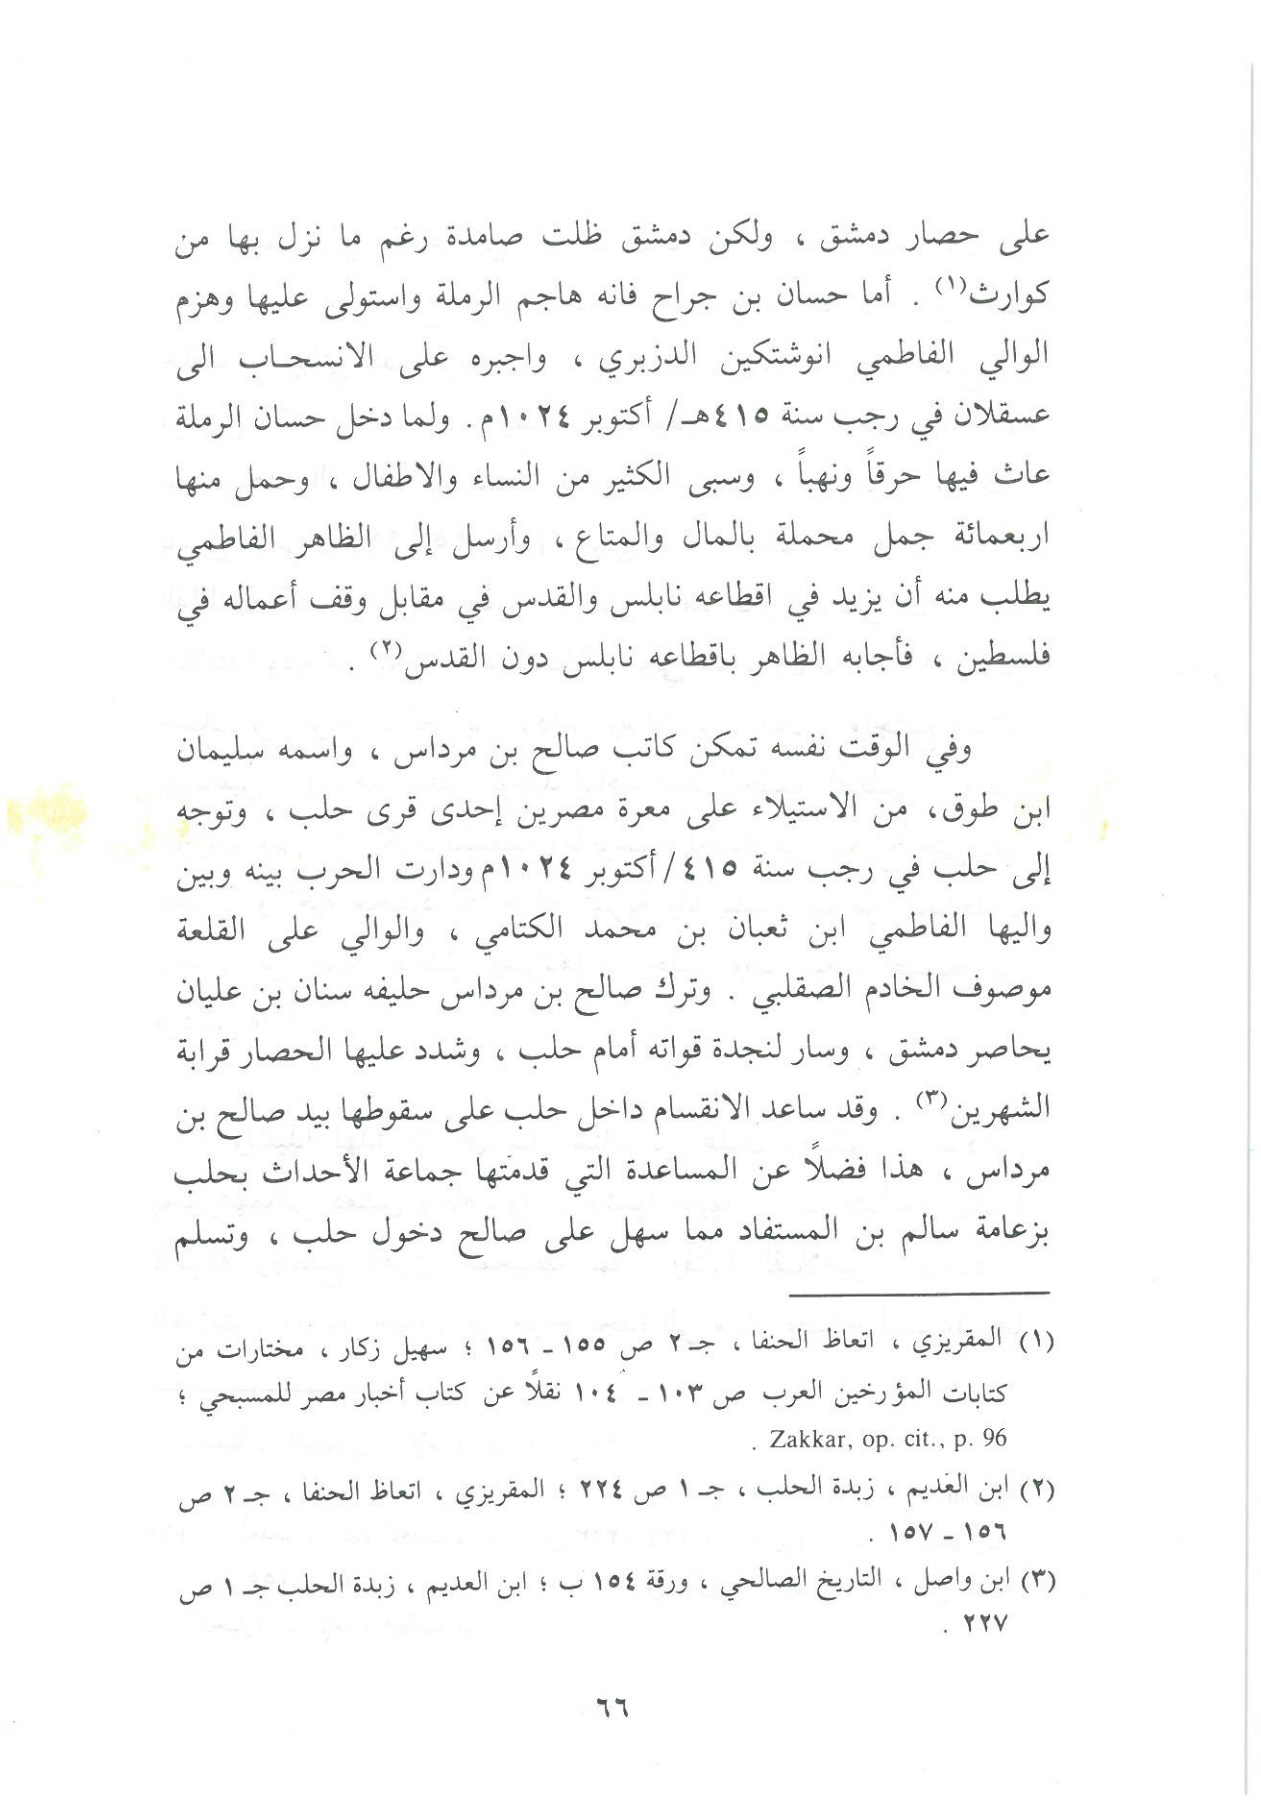 على حصار دمشق ، ولكن دمشق ظلت صامدة رغم ما نزل بها من
كوارث(١) . أما حسان بن جراح فانه هاجم الرملة واستولى عليها وهزم
الوالي الفاطمي انوشتكين الدزبري ، واجبره على الانسحاب الى
عسقلان في رجب سنة ٤١٥هـ/ أكتوبر ١٠٢٤م. ولما دخل حسان الرملة
عاث فيها حرقاً ونهباً ، وسبى الكثير من النساء والاطفال ، وحمل منها
اربعمائة جمل محملة بالمال والمتاع ، وأرسل إلى الظاهر الفاطمي
يطلب منه أن يزيد في اقطاعه نابلس والقدس في مقابل وقف أعماله في
فلسطين ، فأجابه الظاهر باقطاعه نابلس دون القدس(٢) .
وفي الوقت نفسه تمكن كاتب صالح بن مرداس ، واسمه سليمان
ابن طوق، من الاستيلاء على معرة مصرين إحدى قرى حلب ، وتوجه
إلى حلب في رجب سنة ٤١٥/ أكتوبر ١٠٢٤م ودارت الحرب بينه وبين
واليها الفاطمي ابن ثعبان بن محمد الكتامي ، والوالي على القلعة
موصوف الخادم الصقلبي . وترك صالح بن مرداس حليفه سنان بن عليان
يحاصر دمشق ، وسار لنجدة قواته أمام حلب ، وشدد عليها الحصار قرابة
الشهرين(٣) . وقد ساعد الانقسام داخل حلب على سقوطها بيد صالح بن
مرداس ، هذا فضلاً عن المساعدة التي قدمتها جماعة الأحداث بحلب
بزعامة سالم بن المستفاد مما سهل على صالح دخول حلب ، وتسلم
(١) المقريزي ، اتعاظ الحنفا ، جـ ٢ ص ١٥٥ ـ ١٥٦ ؛ سهيل زكار ، مختارات من
كتابات المؤرخين العرب ص ١٠٣ ـ ١٠٤ نقلاً عن كتاب أخبار مصر للمسبحي ؛
Zakkar, op. cit., p. 96 .
(٢) ابن العديم ، زبدة الحلب ، جـ ١ ص ٢٢٤ ؛ المقريزي ، اتعاظ الحنفا ، جـ ٢ ص
١٥٦ ـ ١٥٧ .
(٣) ابن واصل ، التاريخ الصالحي ، ورقة ١٥٤ ب ؛ ابن العديم ، زبدة الحلب جـ ١ ص
٢٢٧ .
٦٦